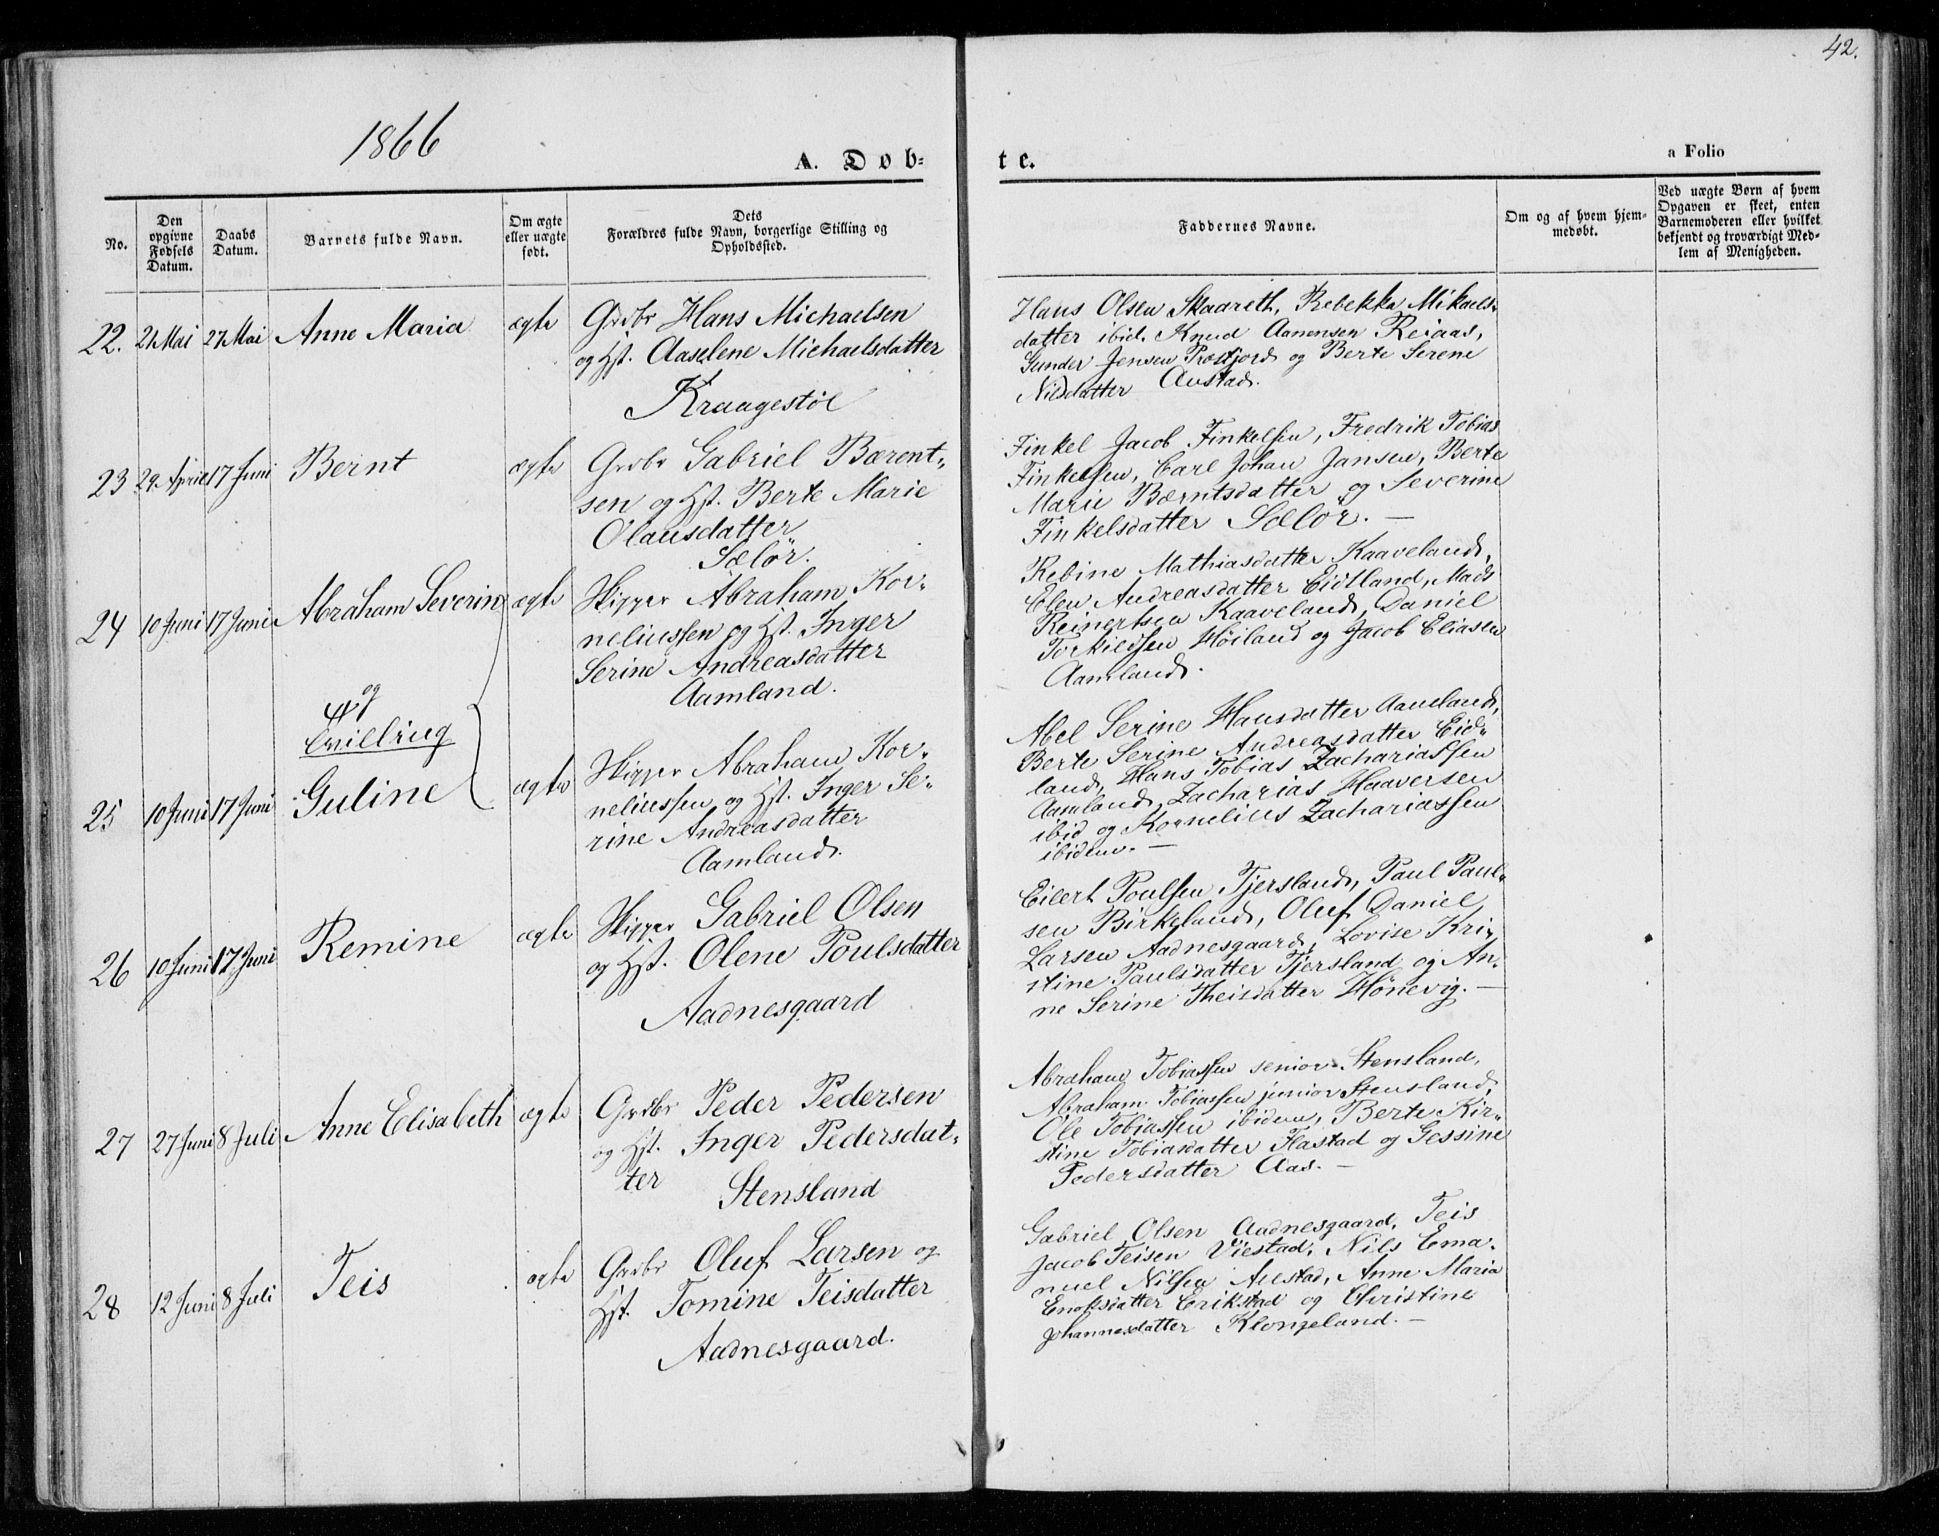 42.
1866
A. Døb-
te.
a Folio
No.
Den opgivne Fødsels Datum.
Daabs Datum.
Barnets fulde Navn.
Om ægte eller uægte født.
Dets Forældres fulde Navn, borgerlige Stilling og Opholdssted.
Faddernes Navne.
Om og af hvem hjem-
medøbt.
Ved uægte Børn af hvem
Opgaven er skeet, enten
Barnemoderen eller hvilket
bekjendt og troværdigt Med-
lem af Menigheden.
22. 21 Mai 27 Mai Anne Maria ægte Grdbr Hans Michaelsen
og Hst. Aaselene Michaelsdatter
Kraagestöl
Hans Olsen Skaareth, Rebekka Mikaels-
datter ibid. Knud Aanensen Reiaas,
Gunder Jensen Præstjord og Berte Serene
Nilsdatter Austad.
23 29. April 17 Juni Bernt ægte Grdbr Gabriel Bærent-
sen og Hst. Berte Marie
Olausdatter
Sælör.
Finkel Jacob Finkelsen, Fredrik Tobias
Finkelsen, Carl Johan Jansen, Berte
Marie Bærntsdatter og Severine
Finkelsdatter Sælör. —
24 10 Juni 17 Juni Abraham Severin ægte Skipper Abraham Kor-
neliussen og Hst. Inger
Serine Andreasdatter
Aamland.
Rebine Mathiasdatter Kaaveland,
Elen Andreasdatter Eidtland, Mads
Reinertsen Kaaveland, Daniel
Torkildsen Høiland og Jacob Eliasen
Aamland.
og
Tvilling
25 10 Juni 17 Juni Guline ægte Skipper Abraham Kor-
neliussen og Hst. Inger Se-
rine Andreasdatter
Aamland.
Abel Serine Hansdatter Aamland,
Berte Serine Andreasdatter Eid-
land, Hans Tobias Zachariassen
Aamland, Zacharias Haaversen
ibid og Kornelius Zachariassen
ibidem. —
26 10 Juni 17 Juni Remine ægte Skipper Gabriel Olsen
og Hst. Olene Poulsdatter
Aadnesgaard
Eilert Poulsen Tjersland, Paul Paul-
sen Birkeland, Oluf Daniel
Larsen Aadnesgaard, Lovise Kri-
stine Paulsdatter Tjersland og An-
ne Serine Theisdatter Hönevig. —
27 27 Juni 8 Juli Anne Elisabeth ægte Grdbr Peder Pedersen
og Hst. Inger Pedersdat-
ter
Stensland
Abraham Tobiassen senior Stensland,
Abraham Tobiassen junior Stensland,
Ole Tobiassen ibidem, Berte Kir-
stine Tobiasdatter Flastad og Gessine
Pedersdatter Aas. —
28 12 Juni 8 Juli Teis ægte Grdbr Oluf Larsen og
Hst. Tomine Teisdatter
Aadnesgaard.
Gabriel Olsen Aadnesgaard, Teis
Jacob Teisen Viestad, Nils Ema-
nuel Nilsen Austad, Anne Maria
Enoksdatter Erikstad og Christine
Johannesdatter Klongeland. —